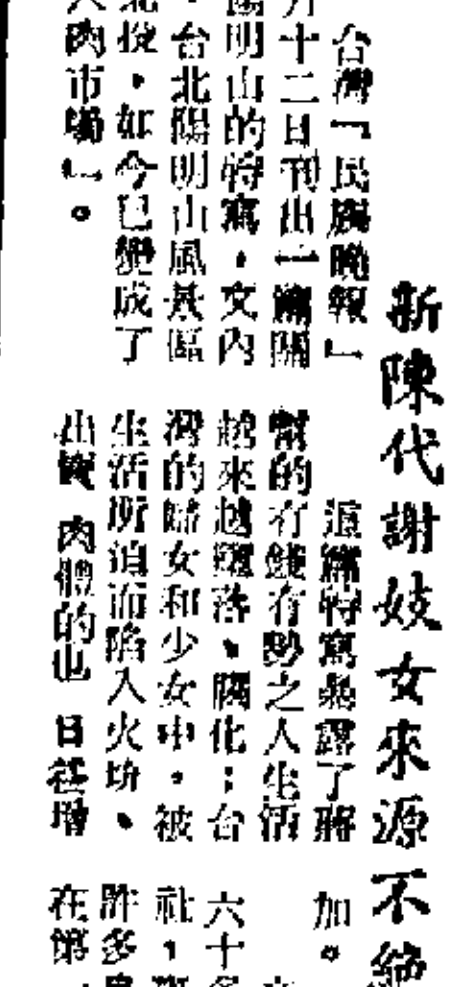 新陳代謝妓女來源不絕
台灣「民族晚報」
月十二日刊出一篇關
陽明山的特寫，文內
，台北陽明山風景區
北投，如今已變成了
人肉市場」。
這篇特寫暴露了蔣
幫的有錢有勢之人生活
越來越墮落、腐化；台
灣的婦女和少女中，被
生活所迫而陷入火坑、
出賣肉體的也日益增
加。
六十多
社，
許多
在第